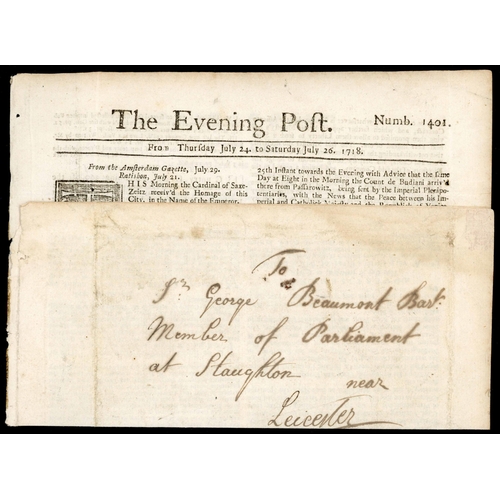 The Evening Post. Numb. 1401.
From Thursday July 24. to Saturday July 26. 1718.
From the Amsterdam Gazette, July 29.
Ratisbon, July 21.
THIS Morning the Cardinal of Saxe-
Zeitz receiv'd the Homage of this
City, in the Name of the Emperor.
25th Instant towards the Evening with Advice that the same
Day at Eight in the Morning the Count de Budiani arriv'd
there from Passarowitz, being sent by the Imperial Plenipo-
tentiaries, with the News that the Peace between his Im-
perial and Catholick Majesty and the Republick of Venice
To
Sr. George Beaumont Bart.
Member of Parliament
at Staughton
near
Leicester